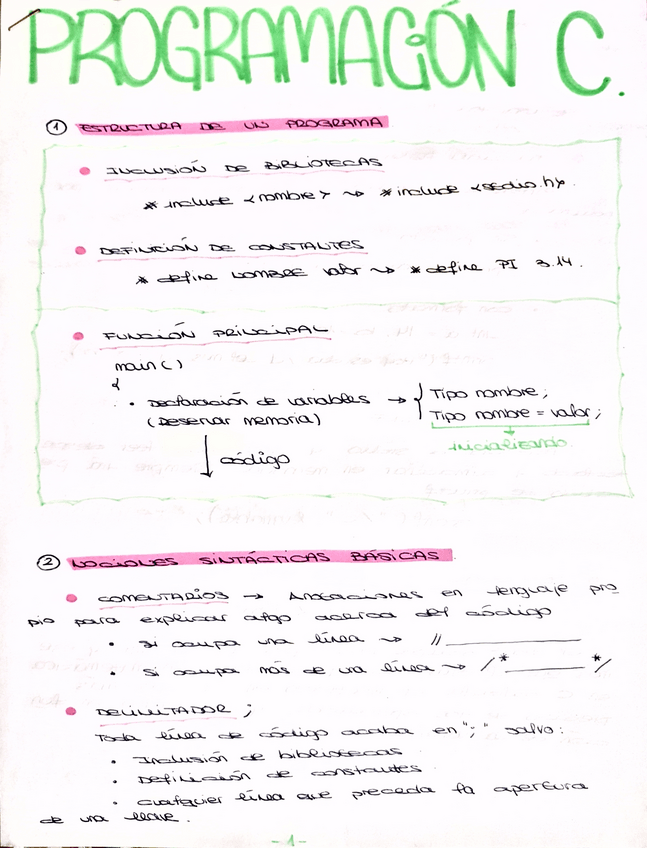 PROGRAMACIÓN C.
① ESTRUCTURA DE UN PROGRAMA
• INCLUSIÓN DE BIBLIOTECAS
* include <nombre> ⇝ * include <stdio.h>.
• DEFINICIÓN DE CONSTANTES
* define NOMBRE valor ⇝ * define PI 3.14.
• FUNCIÓN PRINCIPAL
main ( )
{
• Declaración de variables → { Tipo nombre;
(Reservar memoria) Tipo nombre = valor;
inicializando.
↓ código
② NOCIONES SINTÁCTICAS BÁSICAS
• COMENTARIOS → Anotaciones en lenguaje pro
pio para explicar algo acerca del código
• Si ocupa una línea ⇝ // ________
• Si ocupa más de una línea ⇝ /* ________ */
• DELIMITADOR ;
Toda línea de código acaba en ";" salvo:
• Inclusión de bibliotecas
• Definición de constantes
• Cualquier línea que preceda la apertura
de una llave.
-1-